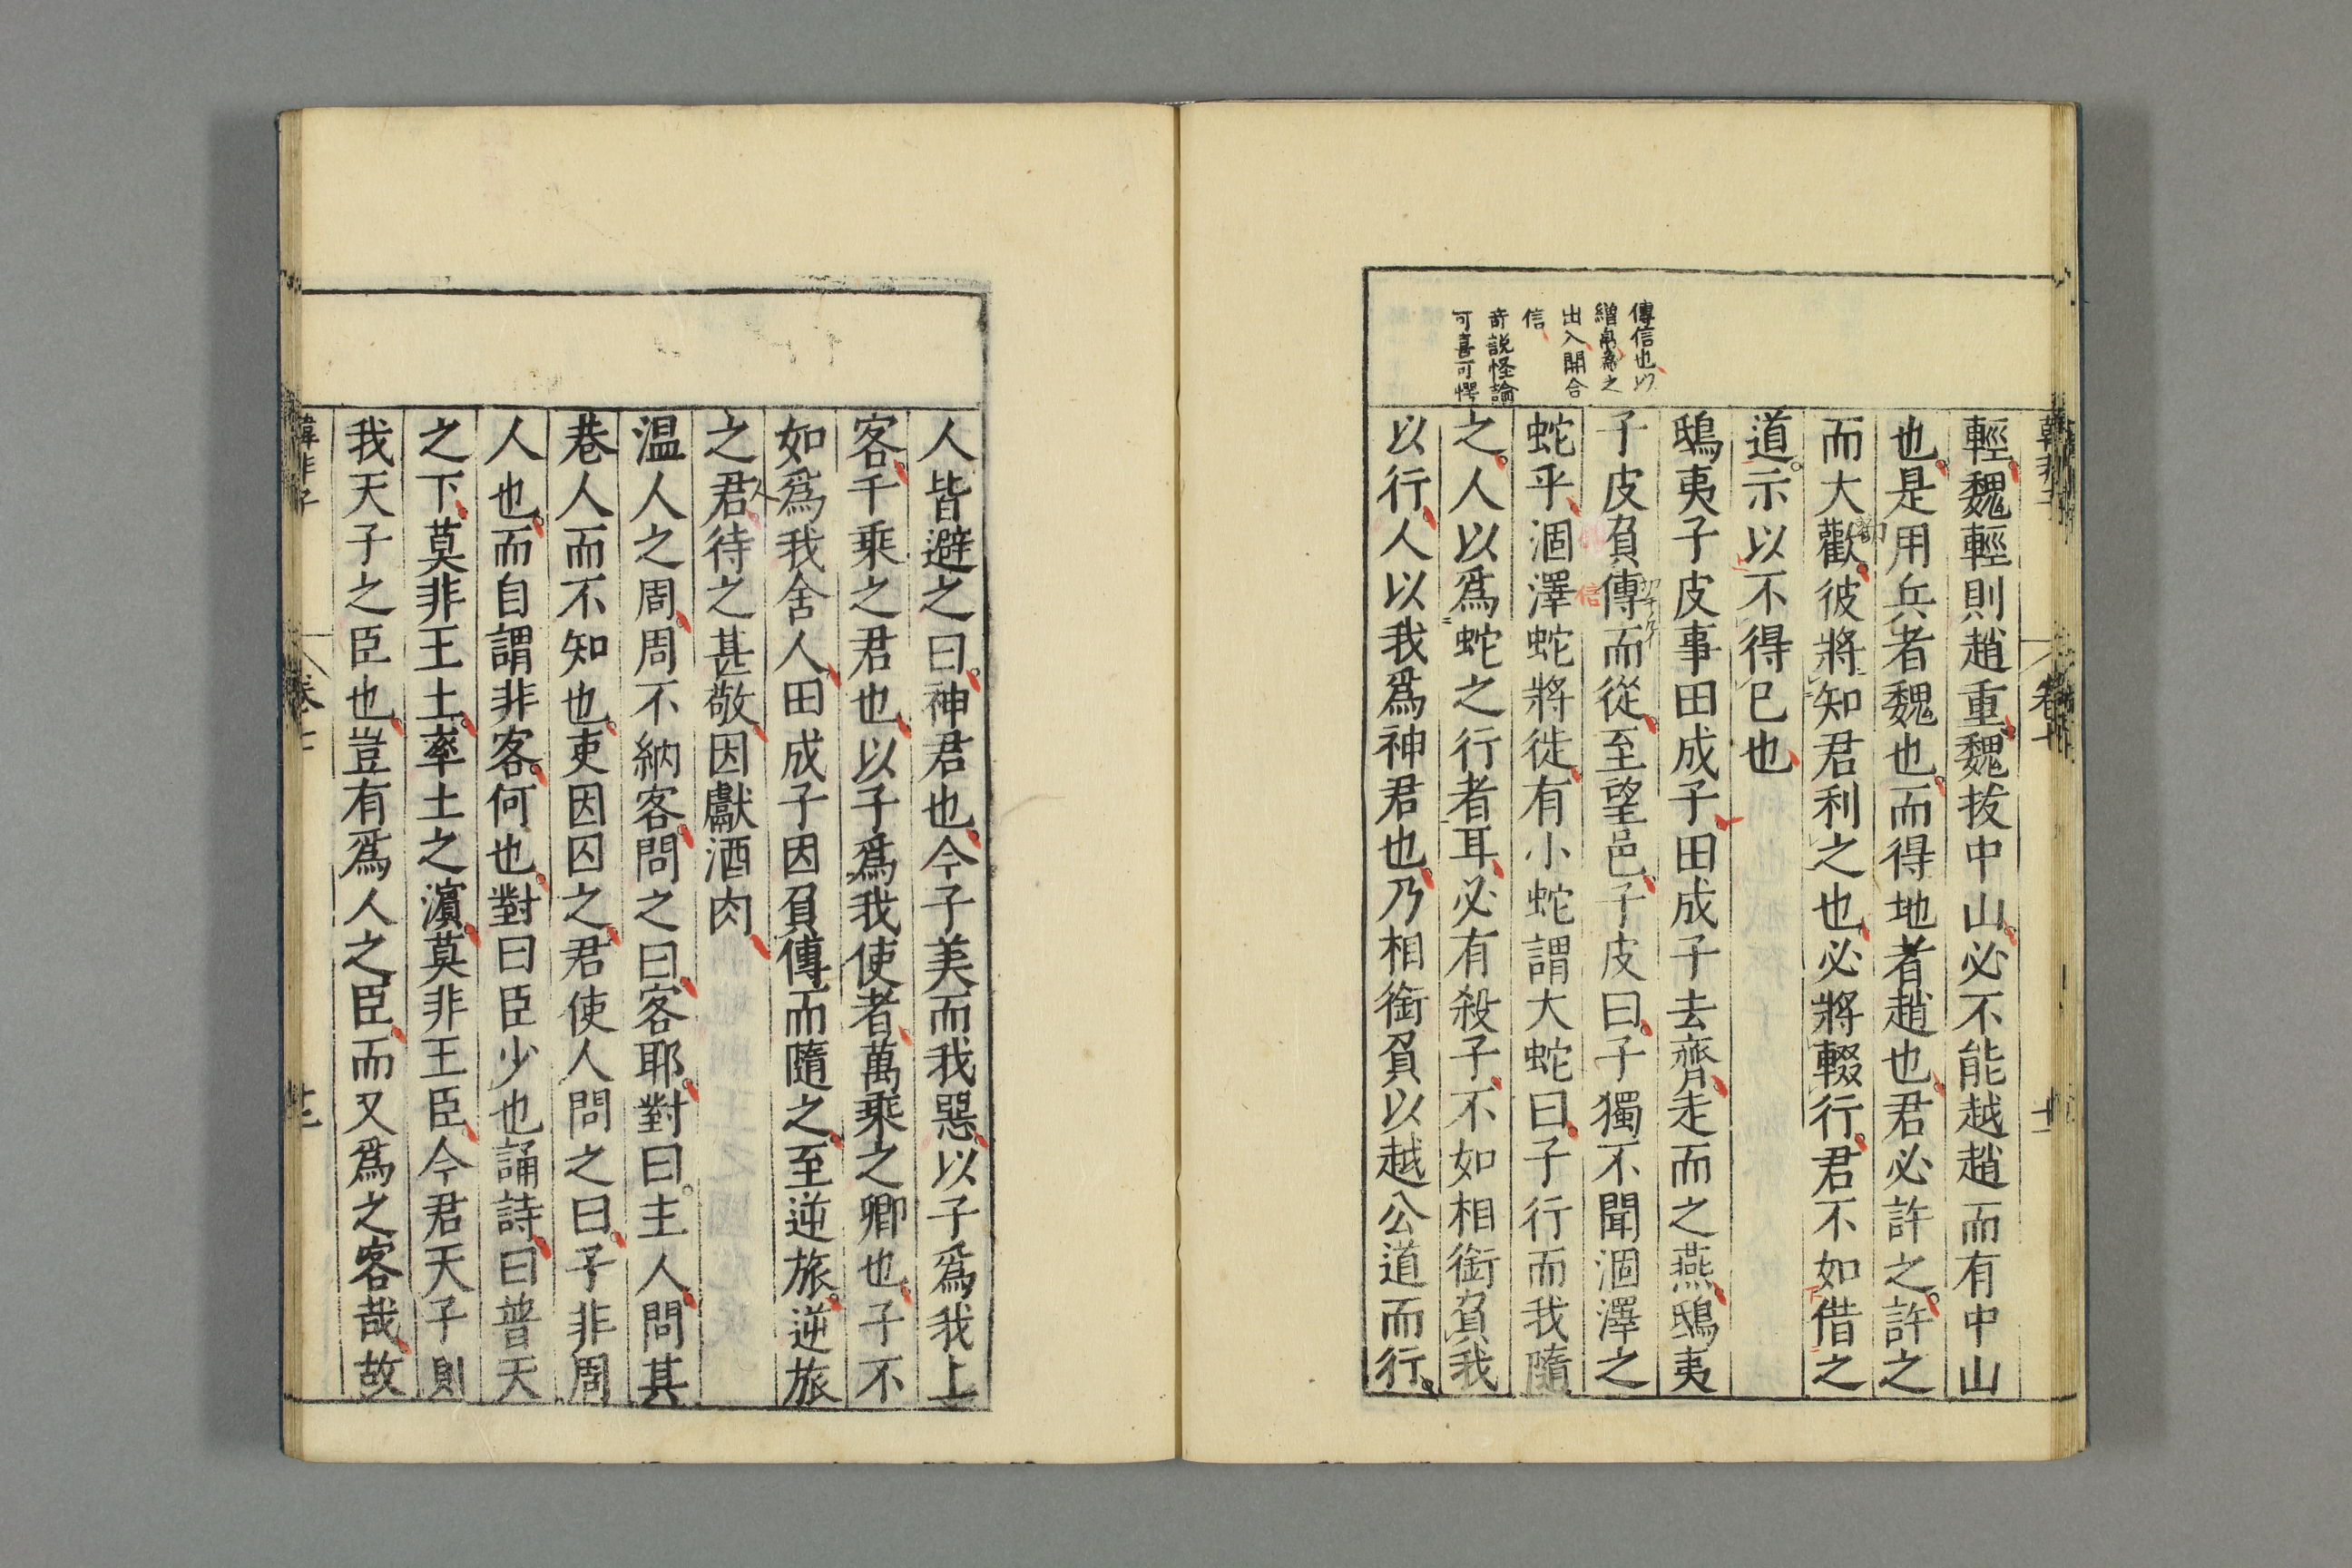 傳信也以
繒帛爲之
出入開合
信
奇說怪論
可喜可愕
輕魏輕則趙重魏拔中山必不能越趙而有中山
也是用兵者魏也而得地者趙也君必許之許之
而大歡彼將知君利之也必將輟行君不如借之
道示以不得已也
鴟夷子皮事田成子田成子去齊走而之燕鴟夷
子皮負傳而從至望邑子皮曰子獨不聞涸澤之
蛇乎涸澤蛇將徙有小蛇謂大蛇曰子行而我隨
之人以爲蛇之行者耳必有殺子不如相銜負我
以行人以我爲神君也乃相銜負以越公道而行
人皆避之曰神君也今子美而我惡以子爲我上
客千乘之君也以子爲我使者萬乘之卿也子不
如爲我舍人田成子因負傳而隨之至逆旅逆旅
之君待之甚敬因獻酒肉
温人之周周不納客問之曰客耶對曰主人問其
巷人而不知也吏因囚之君使人問之曰子非周
人也而自謂非客何也對曰臣少也誦詩曰普天
之下莫非王土率土之濱莫非王臣今君天子則
我天子之臣也豈有爲人之臣而又爲之客哉故
韓非子 卷七